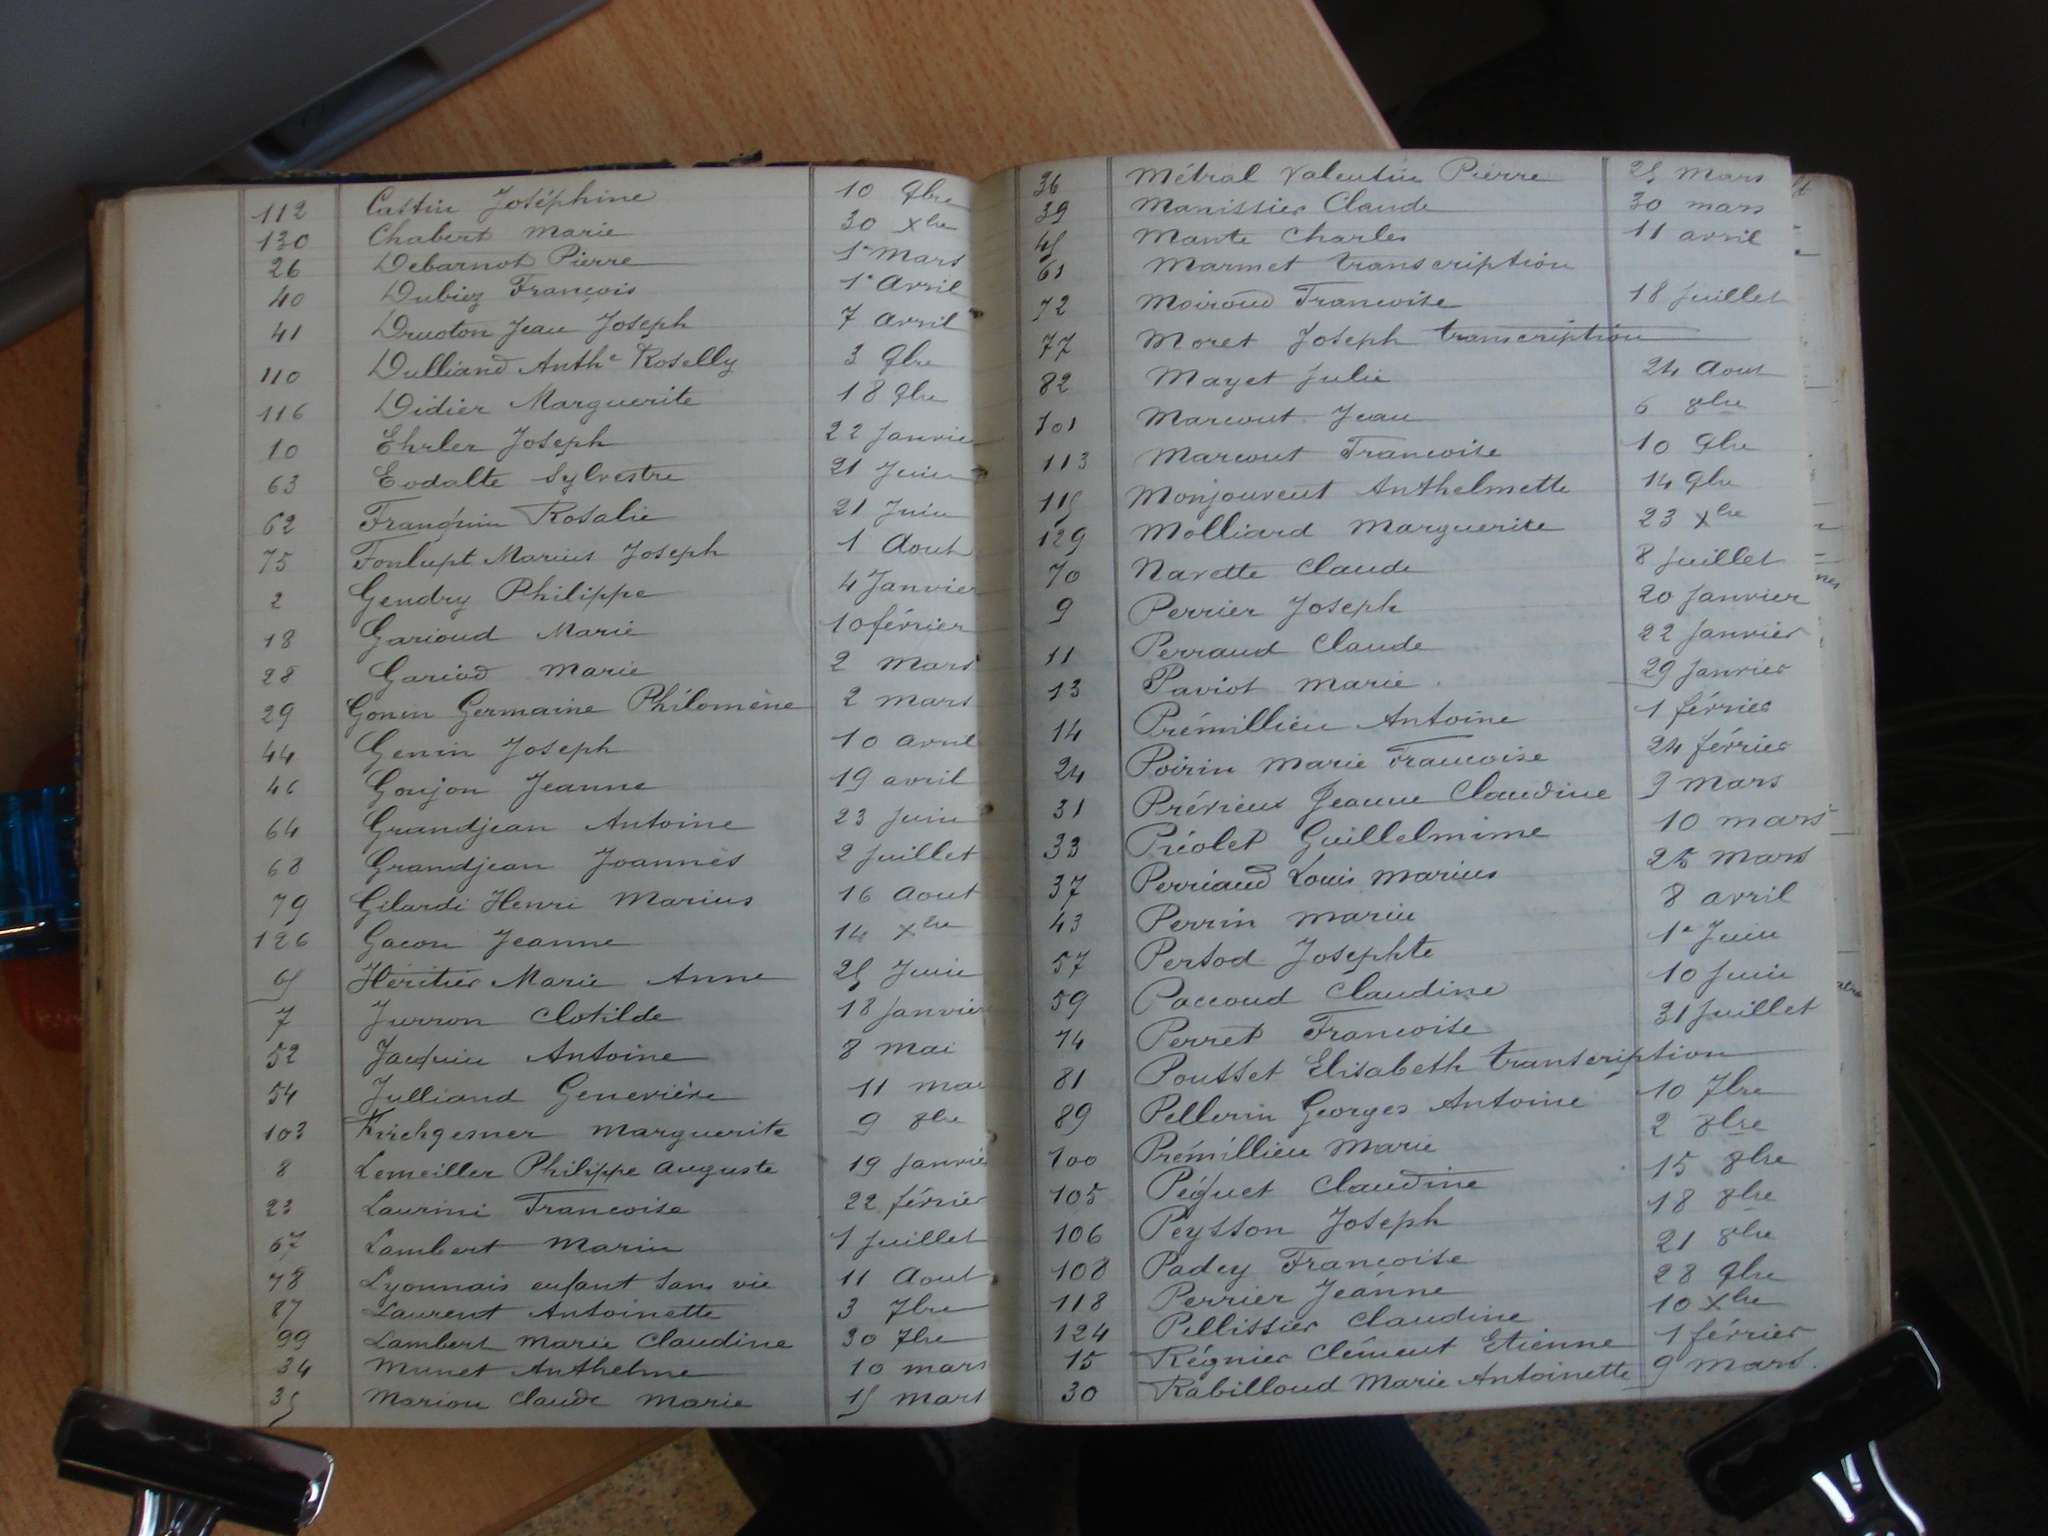 112 Castin Joséphine 10 9bre
130 Chabert Marie 30 Xbre
26 Debarnot Pierre 1er Mars
40 Dubiez François 1er Avril
41 Druoton Jean Joseph 7 Avril
110 Dulliand Anthe Roselly 3 9bre
116 Didier Marguerite 18 9bre
10 Ehrler Joseph 22 Janvier
63 Eodalte Sylvestre 21 Juin
62 Franquin Rosalie 21 Juin
75 Fonlupt Marius Joseph 1 Aout
2 Gendry Philippe 4 Janvier
18 Garioud Marie 10 février
28 Gariod Marie 2 Mars
29 Gonin Germaine Philomène 2 mars
44 Genin Joseph 10 avril
46 Goujon Jeanne 19 avril
64 Grandjean Antoine 23 Juin
68 Grandjean Joannès 2 Juillet
79 Gilardi Henri Marius 16 Aout
126 Gacon Jeanne 14 Xbre
65 Héritier Marie Anne 25 Juin
7 Jurron Clotilde 18 Janvier
52 Jacquin Antoine 8 Mai
54 Julliand Geneviève 11 mai
103 Kirchgesner Marguerite 9 8bre
8 Lemeiller Philippe Auguste 19 Janvier
23 Laurini Francoise 22 février
67 Lambert Marin 1 Juillet
78 Lyonnais enfant sans vie 11 Aout
87 Laurent Antoinette 3 7bre
99 Lambert Marie Claudine 30 7bre
34 Munet Anthelme 10 mars
35 Marion Claude Marie 15 mars
36 Métral Valentin Pierre 25 Mars
39 Manissier Claude 30 mars
45 Mante Charles 11 avril
61 Marmet transcription
72 Moiroud Francoise 18 Juillet
77 Moret Joseph transcription
82 Mayet Julie 24 Aout
101 Marcout Jean 6 8bre
113 Marcout Francoise 10 9bre
115 Monjouvent Anthelmette 14 9bre
129 Molliard Marguerite 23 Xbre
70 Navette Claude 8 Juillet
9 Perrier Joseph 20 Janvier
11 Perraud Claude 22 Janvier
13 Paviot Marie 29 Janvier
14 Prémillieu Antoine 1 février
24 Poirin Marie Francoise 24 février
31 Prévieux Jeanne Claudine 9 Mars
33 Préolet Guillelmime 10 mars
37 Perriaud Louis Marius 25 Mars
43 Perrin Marin 8 avril
57 Persod Josephte 1er Juin
59 Paccoud Claudine 10 Juin
74 Perret Francoise 31 Juillet
81 Pousset Elisabeth transcription
89 Pellerin Georges Antoine 10 7bre
100 Prémillieu Marie 2 8bre
105 Péquet Claudine 15 8bre
106 Peysson Joseph 18 8bre
108 Padey Francoise 21 8bre
118 Perrier Jeanne 28 9bre
124 Pellissier Claudine 10 Xbre
15 Régnier Clément Etienne 1 février
30 Rabilloud Marie Antoinette 9 Mars